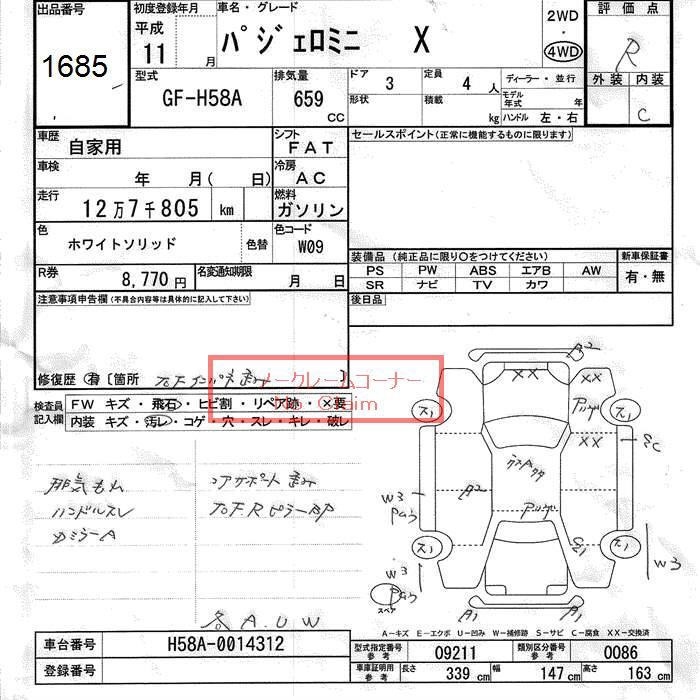 出品番号
1685
初度登録年月
平成
11 月
車名・グレード
パジェロミニ X
2WD
4WD
評価点
R
外装 内装
C
型式
GF-H58A
排気量
659
CC
ドア 3
定員 4 人
形状
積載 kg
ディーラー・並行
モデル年式 年
ハンドル 左・右
車歴
自家用
シフト
FAT
車検
年 月( 日)
冷房
AC
走行
12万7千805 km
燃料
ガソリン
色
ホワイトソリッド
色替
色コード
W09
R券
8,770円
名変通知期限
月 日
セールスポイント(正常に機能するものに限ります)
装備品 (純正品に限り○をつけてください)
PS PW ABS エアB AW
SR ナビ TV カワ
新車保証書
有・無
後日品
注意事項申告欄(不具合内容等は具体的に記入して下さい)
修復歴 有 〔箇所 〕
ノークレームコーナー
No Claim
検査員
記入欄
FW キズ・飛石・ヒビ割・リペア跡・×要
内装 キズ・汚レ・コゲ・穴・スレ・キレ・破レ
排気もれ
ハンドルスレ
コアサポート歪み
各A.U.W
A2
XX
XX
XX
A2
W3
W3
W3
A1
A1
スペア
A-キズ E-エクボ U-凹み W-補修跡 S-サビ C-腐食 XX-交換済
車台番号
H58A-0014312
登録番号
型式指定番号
参考
09211
類別区分番号
参考
0086
車庫証明用
参考
長さ 339 cm
幅 147 cm
高さ 163 cm